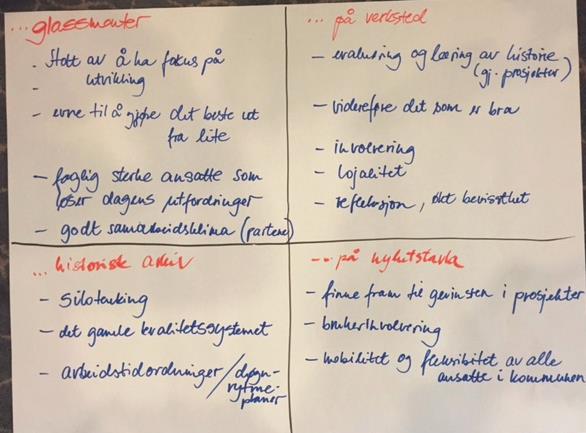 ...glassmonter
- Stolt av å ha fokus på
utvikling
-
- evne til å gjøre det beste ut
fra lite
- faglig sterke ansatte som
løser dagens utfordringer
- godt samarbeidsklima (partene)
... på verksted
- evaluering og læring av historie
(gj. prosjekter)
- videreføre det som er bra
- involvering
- lojalitet
- refleksjon, økt bevissthet
... historisk arkiv
- Silotenking
- det gamle kvalitetssystemet
- arbeidstidordninger/døgn-
rytme-
planer
... på nyhetstavla
- finne fram til gevinsten i prosjekter
- brukerinvolvering
- mobilitet og fleksibitet av alle
ansatte i kommunen